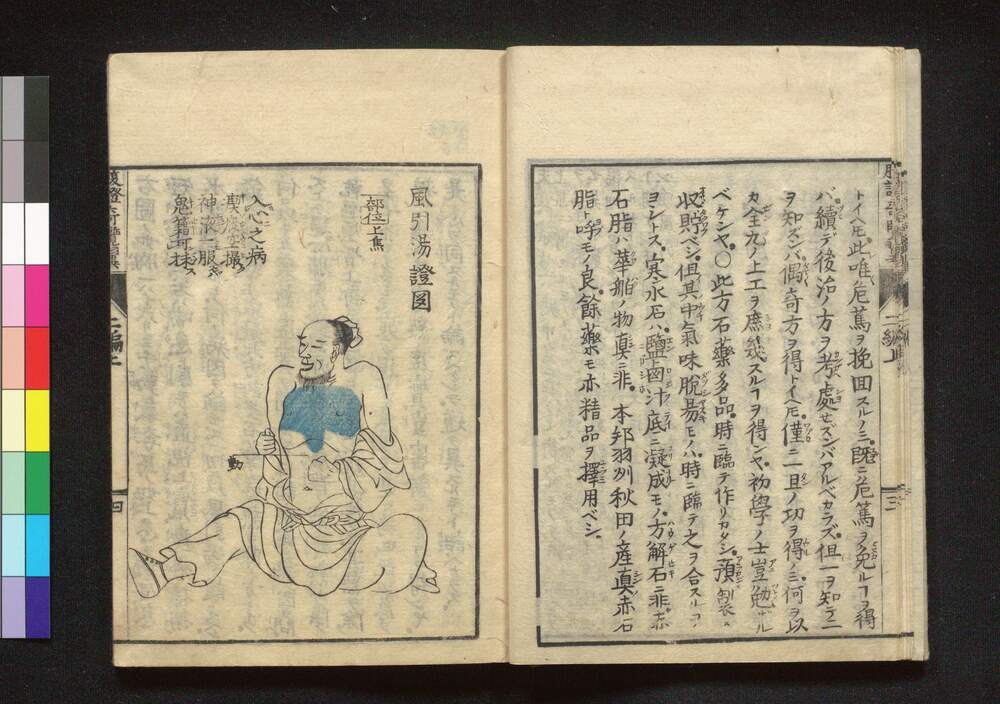 トイヘ𪜈此唯危篤ヲ挽回スルノミ既ニ危篤ヲ免ルヿヲ得
バ續デ後治ノ方ヲ考處セズンバアルベカラズ但一ヲ知テ二
ヲ知ズンバ偶奇方ヲ得トイヘ𪜈僅ニ一旦ノ功ヲ得ノミ何ヲ以
カ全九ノ上工ヲ庶幾スルヿヲ得ンヤ初學ノ士豈勉ザル
ベケンヤ〇此方石藥多品時ニ臨テ作リカタシ預製
收貯ベシ但其中氣味脫昜モノハ時ニ臨テ之ヲ合スルヲ
ヨシトス寒水石ハ鹽鹵汁底ニ凝成モノ方解石ニ非赤
石脂ハ華舶ノ物眞ニ非本邦羽州秋田ノ産眞赤石
脂ト呼モノ良餘藥モ亦精品ヲ擇用ベシ
三
風引湯證図
部位上焦
入心之病
神液一服
鬼籍可抜
動
二編上
四